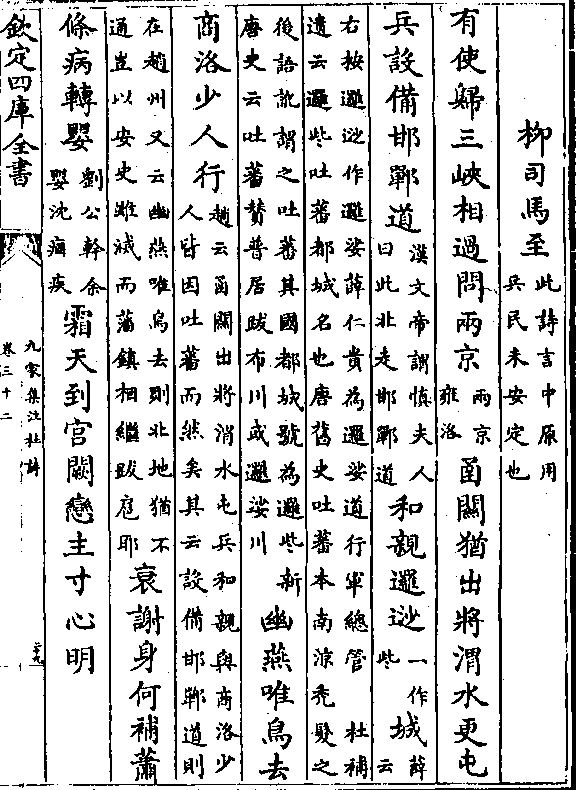 柳司馬至 此詩言中原用兵民未安定也
有使歸三峽相過問兩京 兩京雍洛 函關猶出將渭水更屯
兵設備邯鄲道 漢文帝謂慎夫人曰此北走邯鄲道 和親邏逤 一作些 城 薛云
右按邏逤作邏娑薛仁貴為邏娑道行軍總管 杜補
遺云邏些吐蕃都城名也唐舊史吐蕃本南涼禿髮之
後語訛謂之吐蕃其國都城號為邏些新
唐史云吐蕃贊普居跋布川或邏娑川 幽燕唯鳥去
商洛少人行 趙云函關出將渭水屯兵和親與商洛少
人皆因吐蕃而然矣其云設備邯鄲道則
在趙州又云幽燕唯鳥去則北地猶不
通豈以安史雖滅而藩鎮相繼跋扈耶 衰謝身何補蕭
條病轉嬰 劉公幹余嬰沈痼疾 霜天到宮闕戀主寸心明
欽定四庫全書
九家集注杜詩
卷三十二
二十九